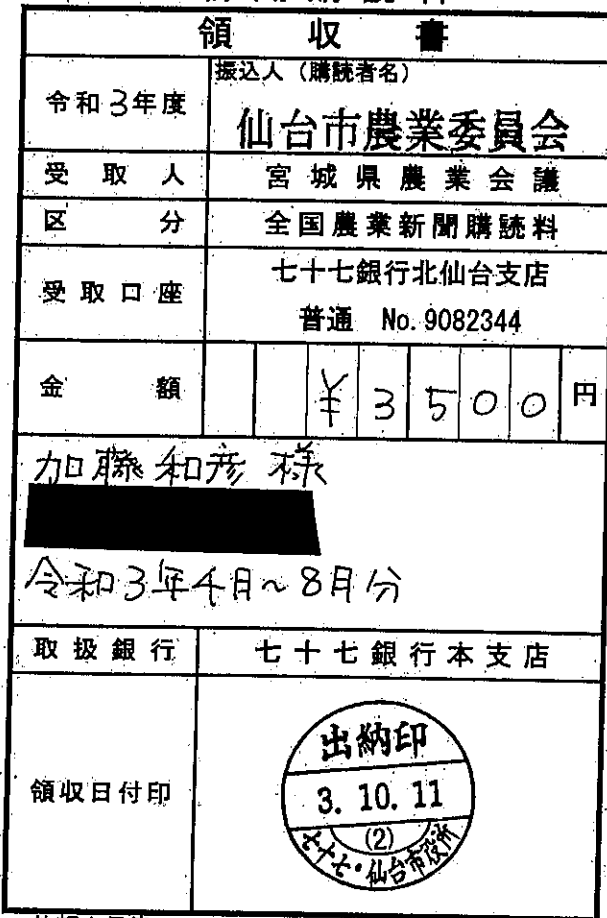 領収書
令和3年度
振込人（購読者名）
仙台市農業委員会
受取人 宮城県農業会議
区分 全国農業新聞購読料
受取口座 七十七銀行北仙台支店
普通 No.9082344
金額 ¥3500円
加藤和彦様
令和3年4月~8月分
取扱銀行 七十七銀行本支店
領収日付印
出納印
3.10.11
(2)
七十七・仙台市役所